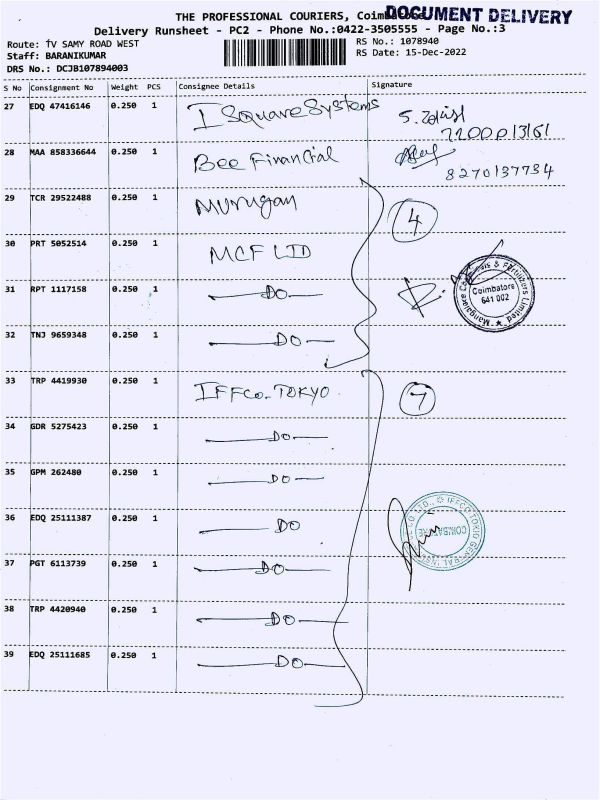 THE PROFESSIONAL COURIERS, Coimbatore
DOCUMENT DELIVERY
Delivery Runsheet - PC2 - Phone No.:0422-3505555 - Page No.:3
Route: TV SAMY ROAD WEST
RS No.: 1078940
Staff: BARANIKUMAR
RS Date: 15-Dec-2022
DRS No.: DCJB107894003
S No Consignment No Weight PCS Consignee Details Signature
27 EDQ 47416146 0.250 1 I Square Systems
28 MAA 858336644 0.250 1 Bee Financial 8270137734
29 TCR 29522488 0.250 1 Murugan 4
30 PRT 5052514 0.250 1 MCF LTD
31 RPT 1117158 0.250 1 DO
Mangalore Chemicals & Fertilizers Limited
Coimbatore
641 002
32 TNJ 9659348 0.250 1 DO
33 TRP 4419930 0.250 1 IFFCO. TOKYO 7
34 GDR 5275423 0.250 1 DO
35 GPM 262480 0.250 1 DO
36 EDQ 25111387 0.250 1 DO
IFFCO TOKIO GENERAL INSURANCE CO LTD.,
COIMBATORE
37 PGT 6113739 0.250 1 DO
38 TRP 4420940 0.250 1 DO
39 EDQ 25111685 0.250 1 DO